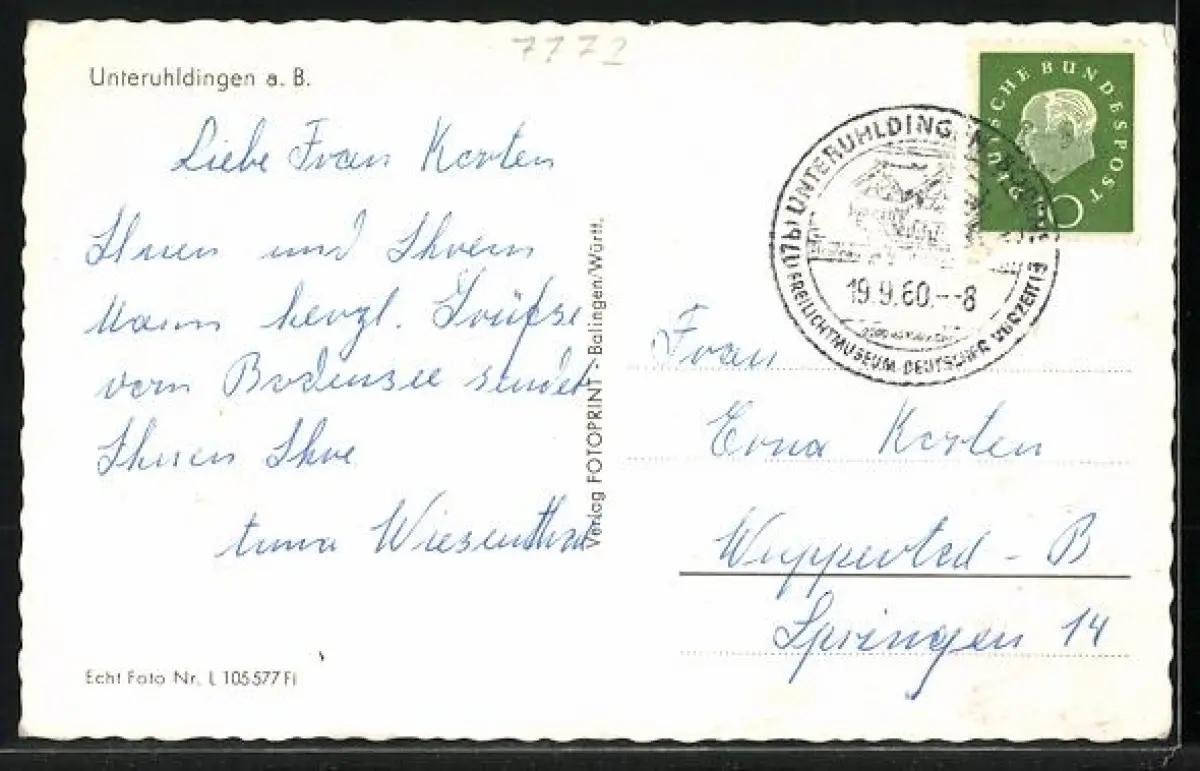 7772
Unteruhldingen a. B.
Liebe Frau Karten
Ihnen und Ihrem
Mann herzl. Grüße
vom Bodensee sendet
Ihnen Ihre
Wiesenthal
Echt Foto Nr. L 105577 Fi
Verlag FOTOPRINT - Balingen/Württ.
DEUTSCHE BUNDESPOST
10
(17b) UNTERUHLDINGEN
19.9.60.--8
FREILICHTMUSEUM DEUTSCHER VORZEIT
Frau
Erna Karten
Wuppertal - B
Springen 14